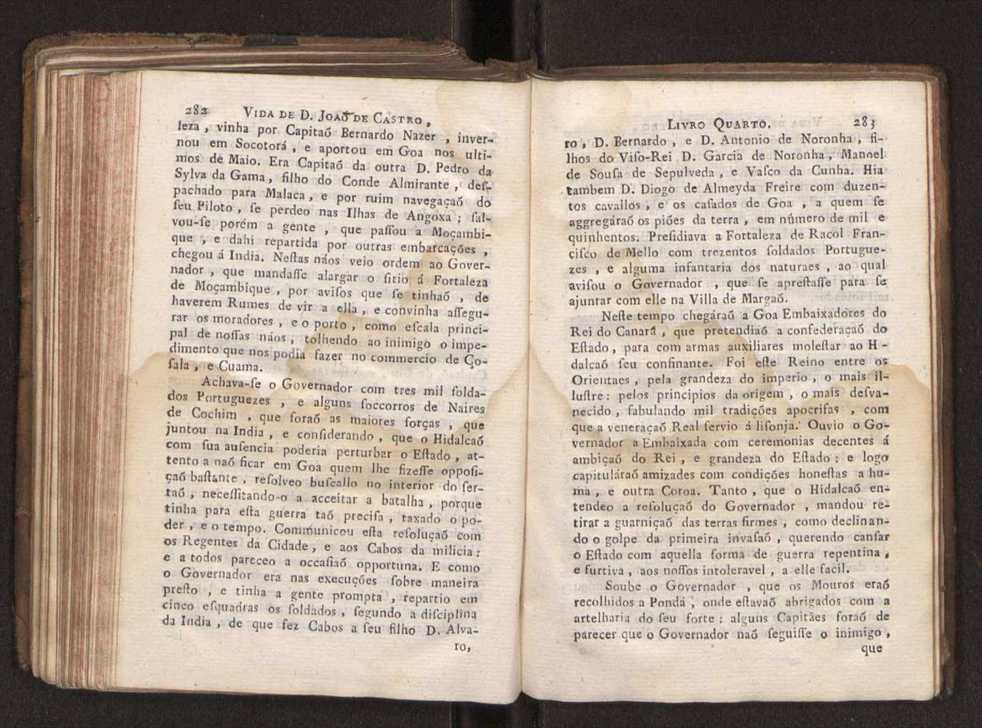 282 VIDA DE D. JOAÕ DE CASTRO,
leza, vinha por Capitaõ Bernardo Nazer, inver-
nou em Socotorá, e aportou em Goa nos ulti-
mos de Maio. Era Capitaõ da outra D. Pedro da
Sylva da Gama, filho do Conde Almirante, deſ-
pachado para Malaca, e por ruim navegaçaõ do
ſeu Piloto, ſe perdeo nas Ilhas de Angoxa; ſal-
vou-ſe porém a gente, que paſſou a Moçambi-
que, e dahi repartida por outras embarcações,
chegou á India. Neſtas náos veio ordem ao Gover-
nador, que mandaſſe alargar o ſitio á Fortaleza
de Moçambique, por aviſos que ſe tinhaõ, de
haverem Rumes de vir a ella, e convinha aſſegu-
rar os moradores, e o porto, como eſcala princi-
pal de noſſas náos, tolhendo ao inimigo o impe-
dimento que nos podia fazer no commercio de Ço-
fala, e Cuama.
Achava-ſe o Governador com tres mil ſolda-
dos Portuguezes, e alguns ſoccorros de Naires
de Cochim, que foraõ as maiores forças, que
juntou na India, e conſiderando, que o Hidalcaõ
com ſua auſencia poderia perturbar o Eſtado, at-
tento a naõ ficar em Goa quem lhe fizeſſe oppoſi-
çaõ baſtante, reſolveo buſcallo no interior do ſer-
taõ, neceſſitando-o a acceitar a batalha, porque
tinha para eſta guerra taõ preciſa, taxado o po-
der, e o tempo. Communicou eſta reſoluçaõ com
os Regentes da Cidade, e aos Cabos da milicia:
e a todos pareceo a occaſiaõ opportuna. E como
o Governador era nas execuções ſobre maneira
preſto, e tinha a gente prompta, repartio em
cinco eſquadras os ſoldados, ſegundo a diſciplina
da India, de que fez Cabos a ſeu filho D. Alva-
ro,
LIVRO QUARTO. 283
ro, D. Bernardo, e D. Antonio de Noronha, fi-
lhos do Viſo-Rei D. Garcia de Noronha, Manoel
de Souſa de Sepulveda, e Vaſco da Cunha. Hia
tambem D. Diogo de Almeyda Freire com duzen-
tos cavallos, e os caſados de Goa, a quem ſe
aggregáraõ os piões da terra, em número de mil e
quinhentos. Preſidiava a Fortaleza de Racol Fran-
ciſco de Mello com trezentos ſoldados Portugue-
zes, e alguma infantaria dos naturaes, ao qual
aviſou o Governador, que ſe apreſtaſſe para ſe
ajuntar com elle na Villa de Margaõ.
Neſte tempo chegáraõ a Goa Embaixadores do
Rei do Canará, que pretendiaõ a confederaçaõ do
Eſtado, para com armas auxiliares moleſtar ao H-
dalcaõ ſeu confinante. Foi eſte Reino entre os
Orientaes, pela grandeza do imperio, o mais il-
luſtre: pelos principios da origem, o mais deſva-
necido, fabulando mil tradições apocrifas, com
que a veneraçaõ Real ſervio á liſonja. Ouvio o Go-
vernador a Embaixada com ceremonias decentes á
ambiçaõ do Rei, e grandeza do Eſtado: e logo
capituláraõ amizades com condições honeſtas a hu-
ma, e outra Coroa. Tanto, que o Hidalcaõ en-
tendeo a reſoluçaõ do Governador, mandou re-
tirar a guarniçaõ das terras firmes, como declinan-
do o golpe da primeira invaſaõ, querendo canſar
o Eſtado com aquella forma de guerra repentina,
e furtiva, aos noſſos intoleravel, a elle facil.
Soube o Governador, que os Mouros eraõ
recolhidos a Pondá, onde eſtavaõ abrigados com a
artelharia do ſeu forte: alguns Capitães foraõ de
parecer que o Governador naõ ſeguiſſe o inimigo,
que